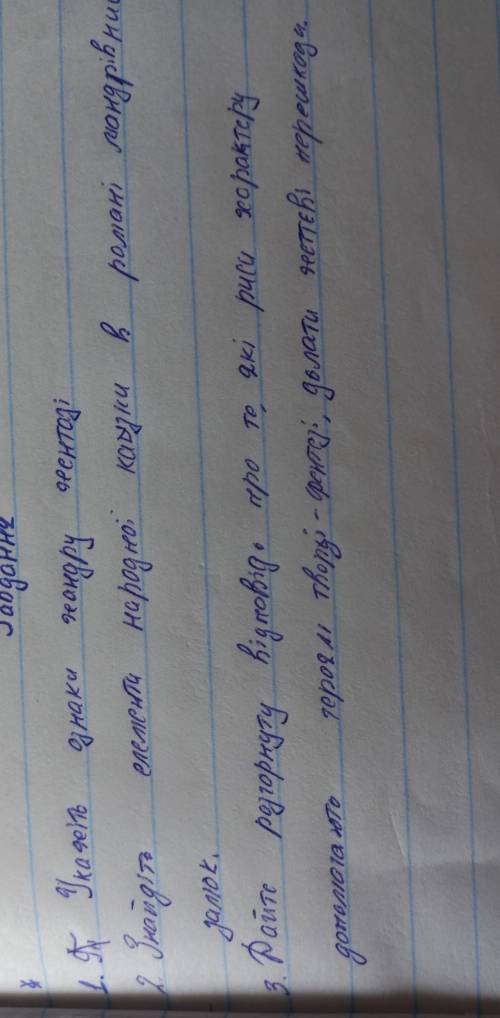 Завдання
*
1. Укажіть ознаки жанру жентезі
2. Знайдіть елементи народної казки в романі мандрівний
замок.
3. Дайте розгорнуту відповідь про те, які риси характеру
допомагають героям творі-фентезі, долати життєві перешкода.